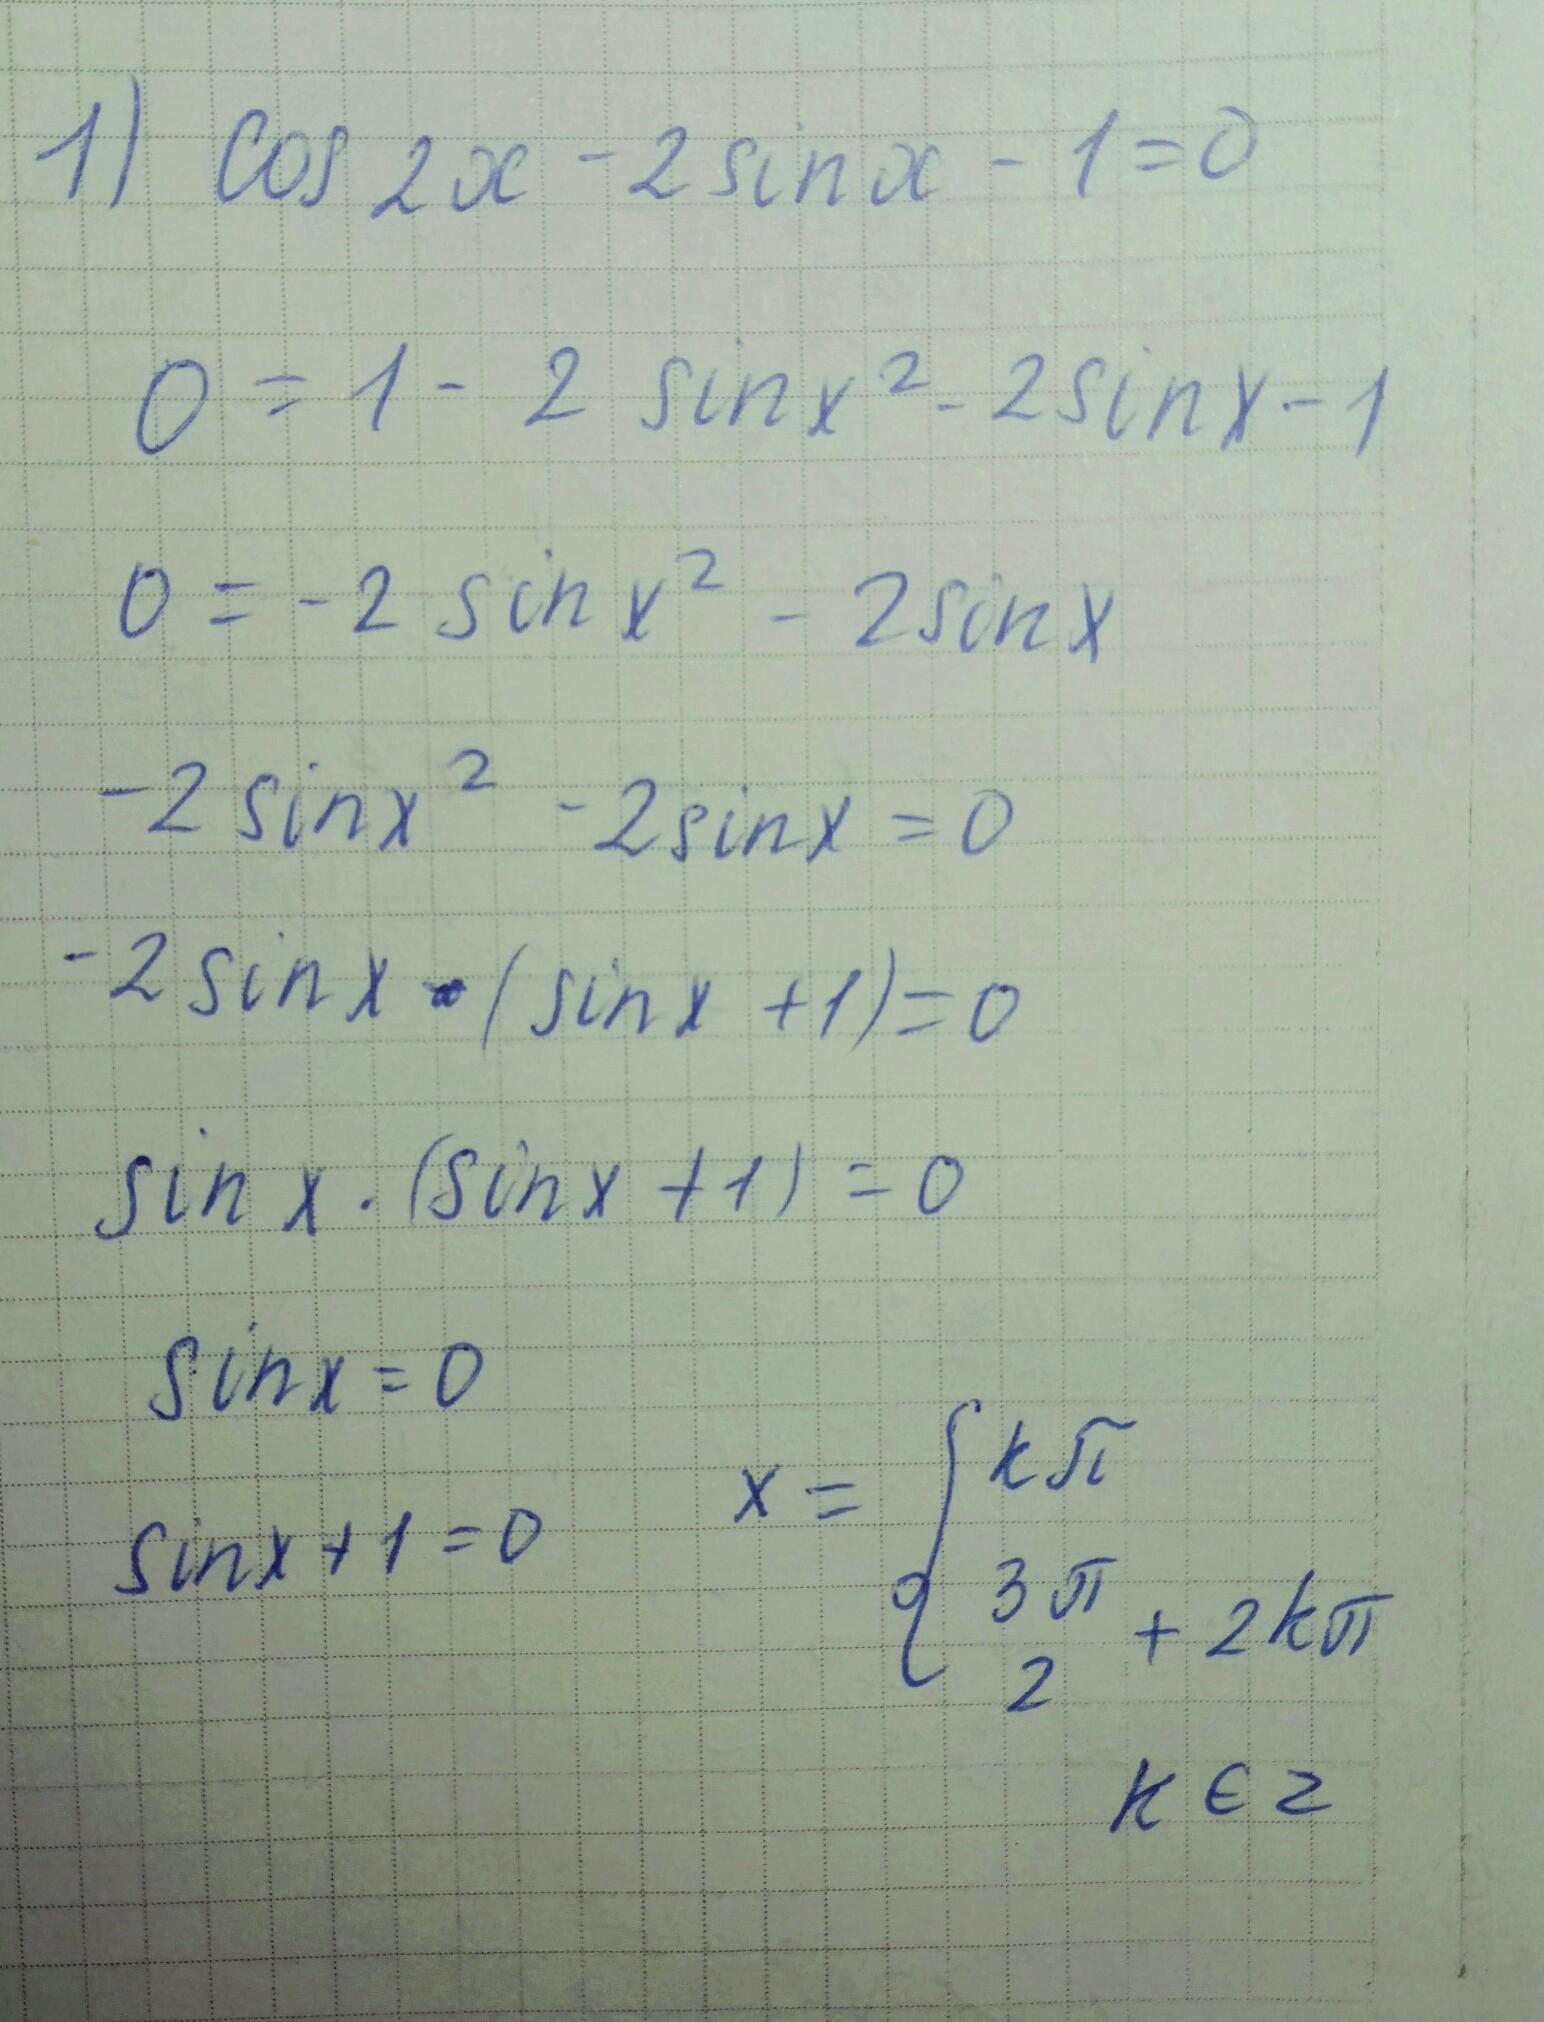 1) cos 2x - 2 sin x - 1 = 0
0 = 1 - 2 sin x² - 2 sin x - 1
0 = - 2 sin x² - 2 sin x
-2 sin x² - 2 sin x = 0
-2 sin x · (sin x + 1) = 0
sin x · (sin x + 1) = 0
sin x = 0
sin x + 1 = 0
x = { kπ
3π/2 + 2kπ
k ∈ z